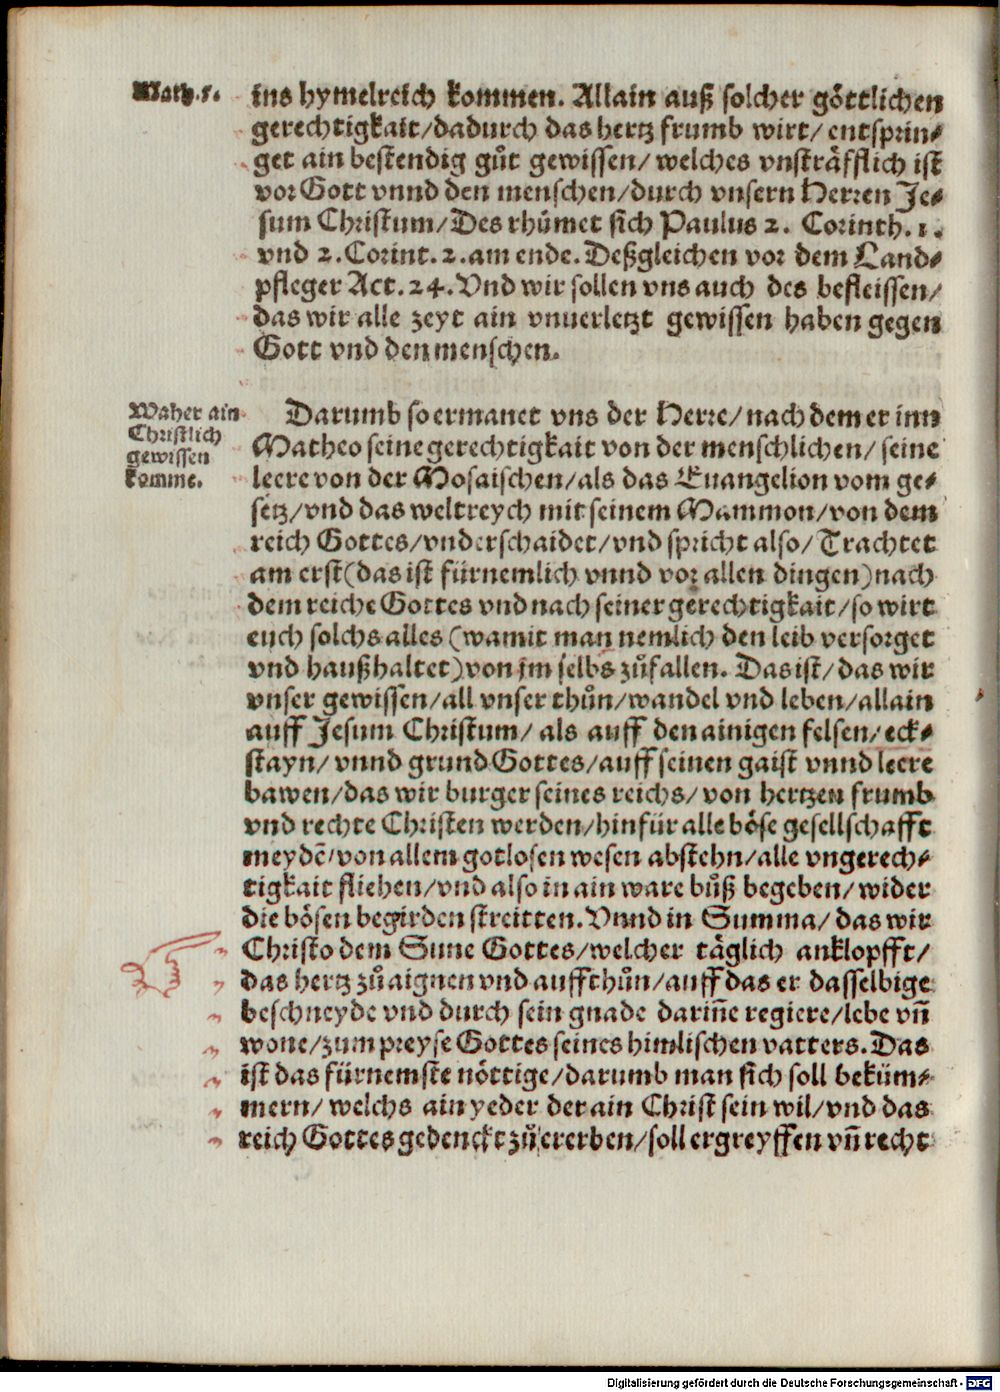 Math.5.
ins hymelreich kommen. Allain auß solcher göttlichen
gerechtigkait/dadurch das hertz frumb wirt/ entsprin⸗
get ain bestendig gůt gewissen/ welches vnsträfflich ist
vor Gott vnnd den menschen/durch vnsern Herren Je⸗
sum Christum/Des rhůmet sich Paulus 2. Corinth. 1.
vnd 2.Corint.2.am ende. Deßgleichen vor dem Land⸗
pfleger Act.24.Vnd wir sollen vns auch des befleissen/
das wir alle zeyt ain vnuerletzt gewissen haben gegen
Gott vnd den menschen.
Waher ain
Christlich
gewissen
komme.
Darumb so ermanet vns der Herre/nach dem er inn
Matheo seine gerechtigkait von der menschlichen/ seine
leere von der Mosaischen/als das Euangelion vom ge⸗
setz/vnd das weltreych mit seinem Mammon/von dem
reich Gottes/vnderschaidet/vnd spricht also/Trachtet
am erst(das ist fürnemlich vnnd vor allen dingen)nach
dem reiche Gottes vnd nach seiner gerechtigkait/so wirt
euch solchs alles (wamit man nemlich den leib versorget
vnd haußhaltet)von jm selbs zůfallen. Das ist/das wir
vnser gewissen/all vnser thůn/wandel vnd leben/allain
auff Jesum Christum/ als auff den ainigen felsen/eck⸗
stayn/ vnnd grund Gottes/auff seinen gaist vnnd leere
bawen/das wir burger seines reichs/von hertzen frumb
vnd rechte Christen werden/hinfür alle böse gesellschafft
meydē/von allem gotlosen wesen abstehn/alle vngerech⸗
tigkait fliehen/vnd also in ain ware bůß begeben/wider
die bösen begirden streitten.Vnnd in Summa/das wir
Christo dem Sune Gottes/welcher täglich anklopfft/
das hertz zů aignen vnd auffthůn/auff das er dasselbige
beschneyde vnd durch sein gnade dariñe regiere/lebe vñ
wone/zum preyse Gottes seines himlischen vatters.Das
ist das fürnemste nöttige/darumb man sich soll beküm⸗
mern/ welchs ain yeder der ain Christ sein wil/vnd das
reich Gottes gedenckt zů ererben/soll ergreyffen vñ recht
Digitalisierung gefördert durch die Deutsche Forschungsgemeinschaft - DFG